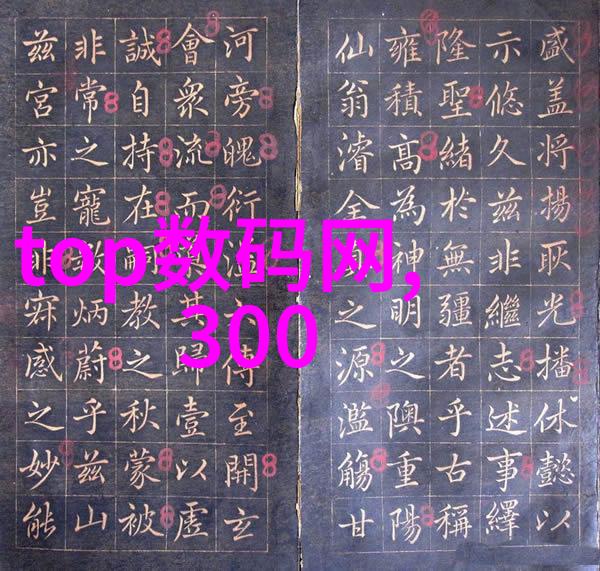 盛盖将揚耿光播休懿以
示悠久茲非繼志述事繹
隆聖緒於無疆者乎古稱
雍積髙為神明之隩重陽
仙翁濬全真之源濫觴甘
河旁魄衍傳至開玄
會衆流而其歸壹以虛
誠自持在嗣教之秋蒙被
非常之寵炳蔚乎茲山
茲宮亦豈非冥感之妙能
top数码网,
300